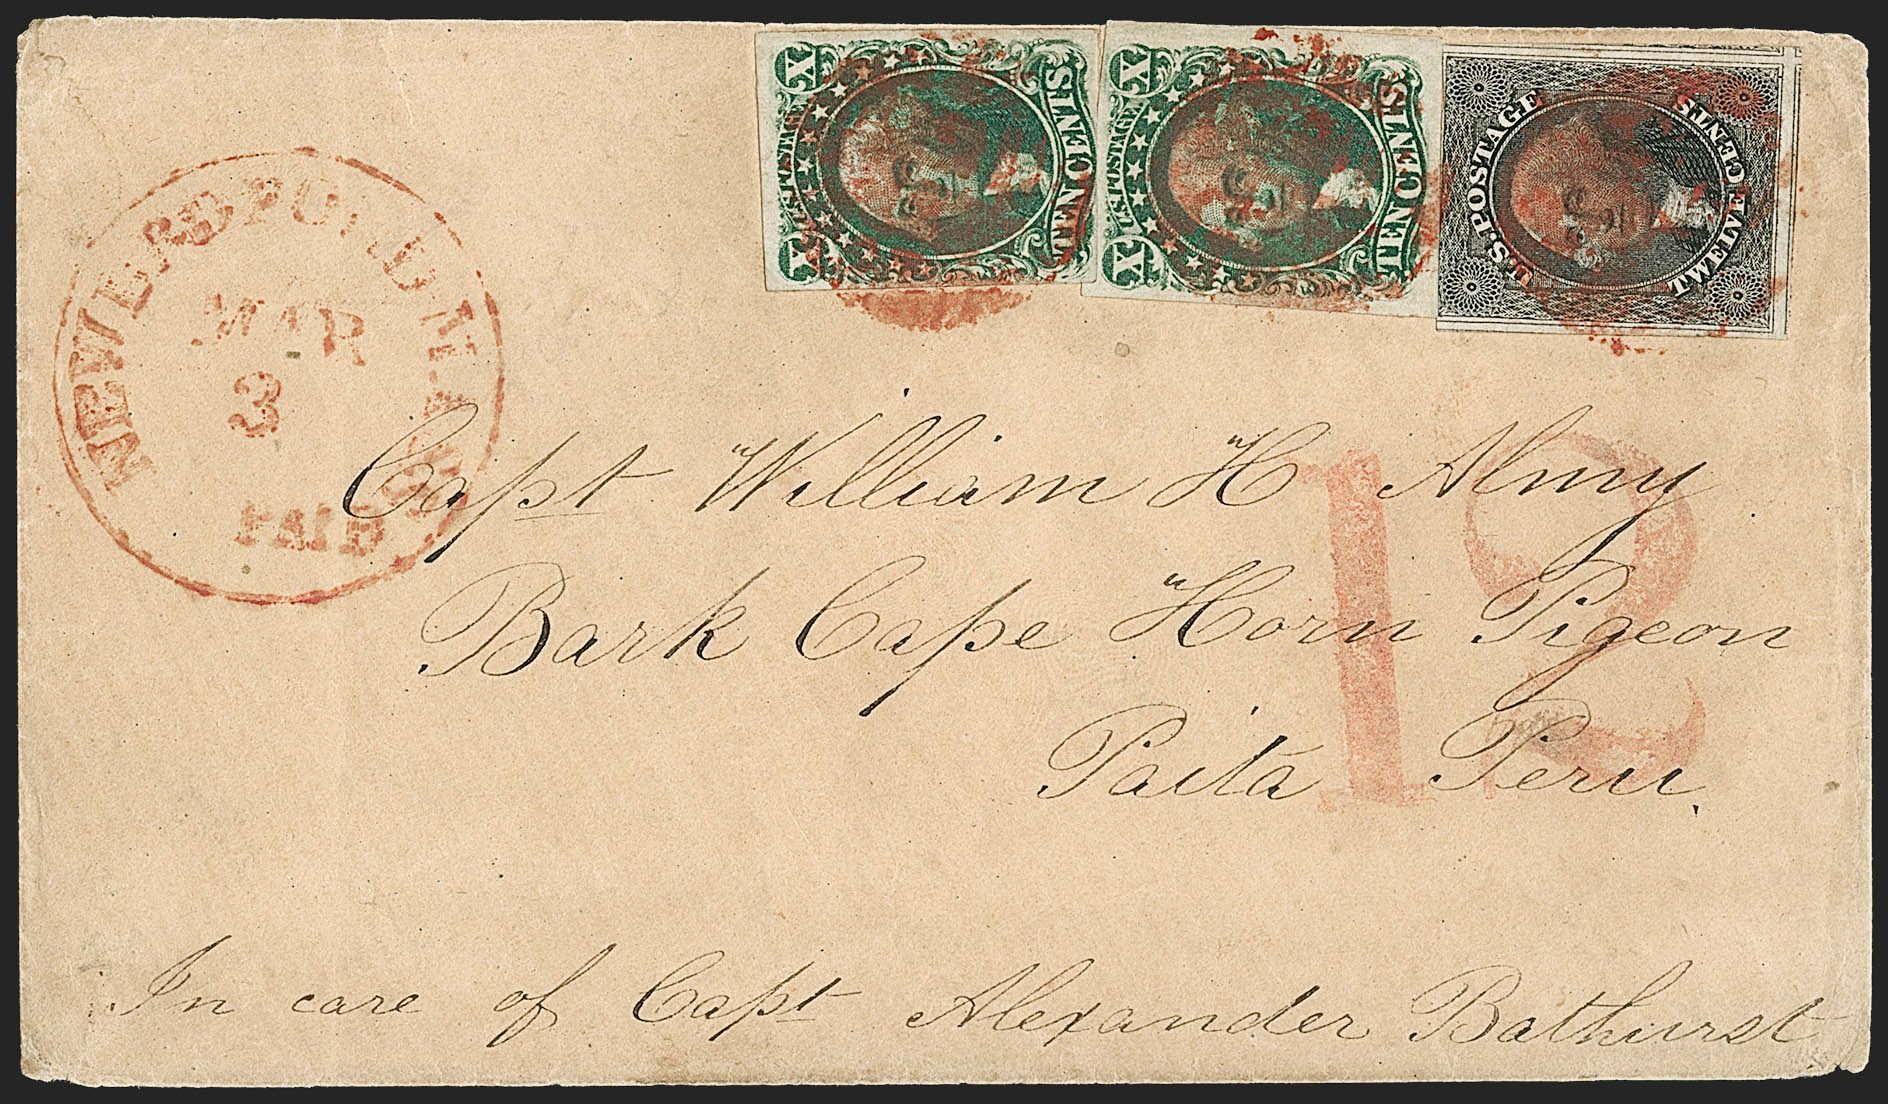 X U.S. POSTAGE X TEN CENTS
X U.S. POSTAGE X TEN CENTS
U.S. POSTAGE TWELVE CENTS
NEW BEDFORD Ms
MAR
3
PAID
12
Capt William H Almy
Bark Cape Horn Pigeon
Paita Peru.
In care of Capt Alexander Bathurst